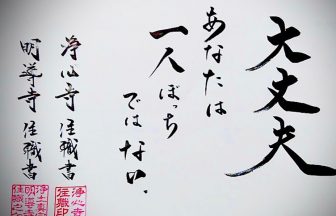 大丈夫
あなたは
一人ぼっち
ではない。
浄心寺 住職書
明導寺 住職書
浄心寺
住職印